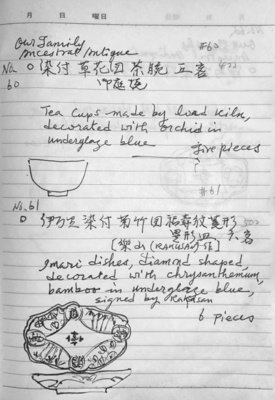 月 日 曜日
Our Family
Ancestral Antique
#60
No. ○ 染付草花図茶碗 五客
60
Tea Cups made by load kiln,
decorated with orchid in
underglaze blue
five pieces
#61
No. 61
○ 伊万里染付菊竹図福寿紋菱形
Imari dishes, diamond shaped,
decorated with chrysanthemum,
bamboo in underglaze blue,
signed by Rakusan
6 pieces